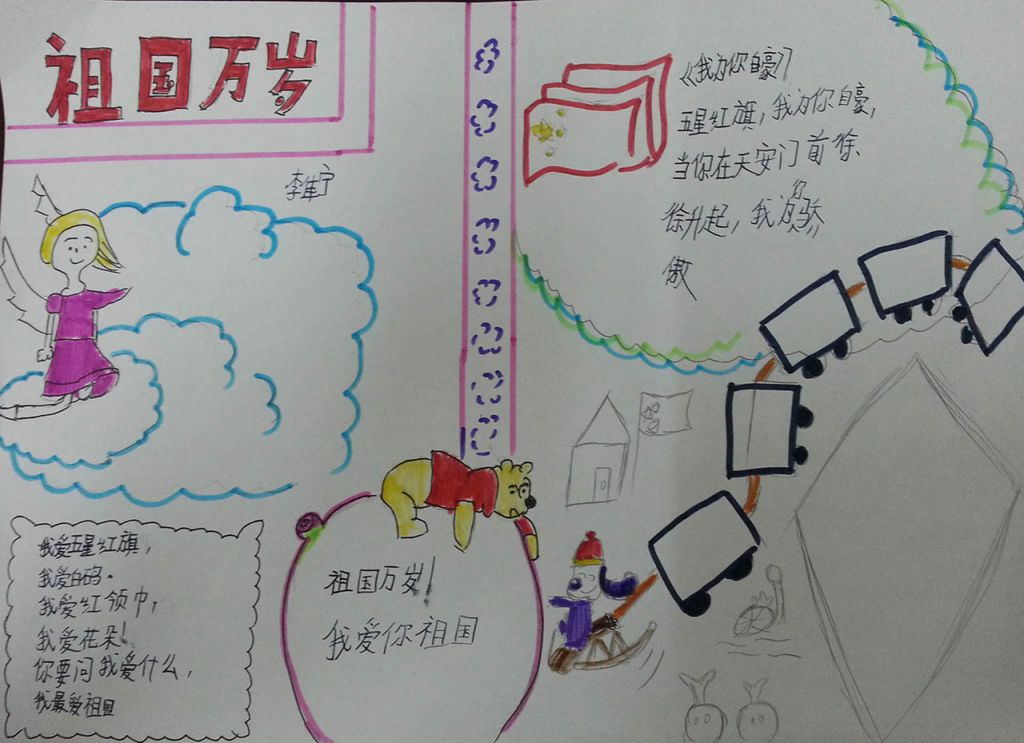 祖国万岁
《我为你自豪》
五星红旗,我为你自豪,
当你在天安门前徐
徐升起,我为你骄
傲
我爱五星红旗,
我爱白鸽.
我爱红领巾,
我爱花朵!
你要问我爱什么,
我最爱祖国
祖国万岁!
我爱你祖国